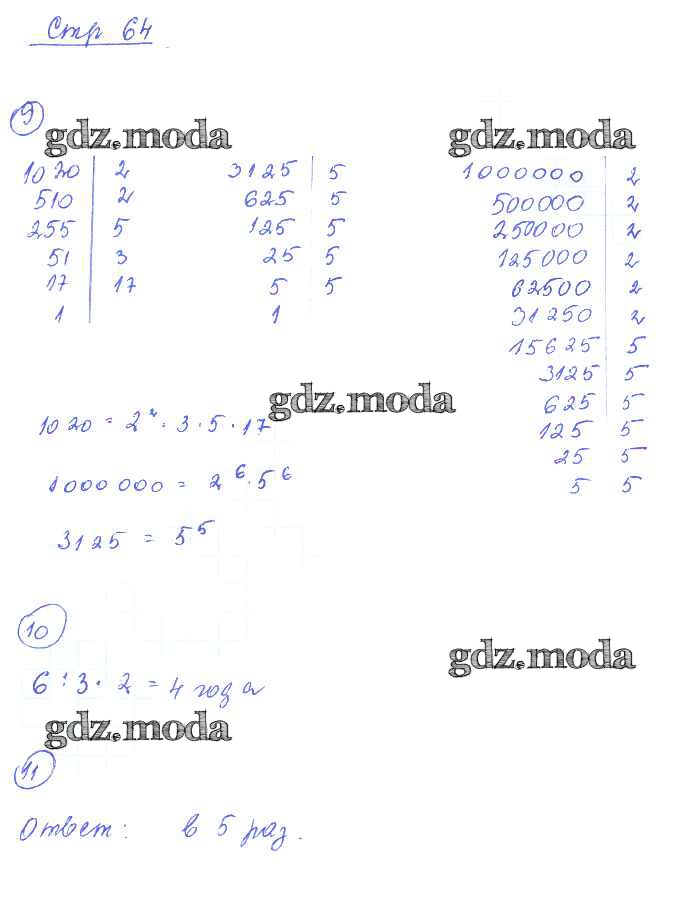 Стр 64
9
gdz.moda gdz.moda
1020 | 2
510 | 2
255 | 5
51 | 3
17 | 17
1 |
3125 | 5
625 | 5
125 | 5
25 | 5
5 | 5
1
1000000 | 2
500000 | 2
250000 | 2
125000 | 2
62500 | 2
31250 | 2
15625 | 5
3125 | 5
625 | 5
125 | 5
25 | 5
5 | 5
gdz.moda
1020 = 2² · 3 · 5 · 17
1000 000 = 2⁶ · 5⁶
3125 = 5⁵
10
gdz.moda
6 : 3 · 2 = 4 года
gdz.moda
11
Ответ: в 5 раз.